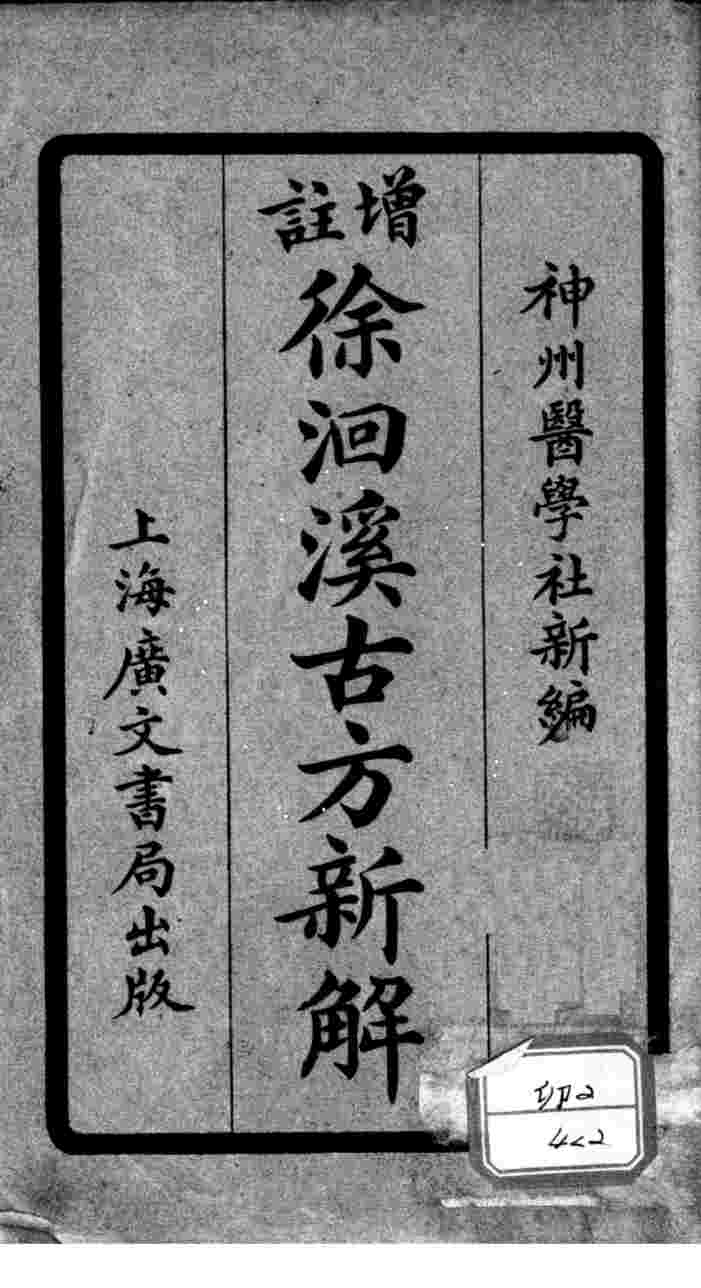 神州醫學社新編
增註
徐洄溪古方新解
上海廣文書局出版